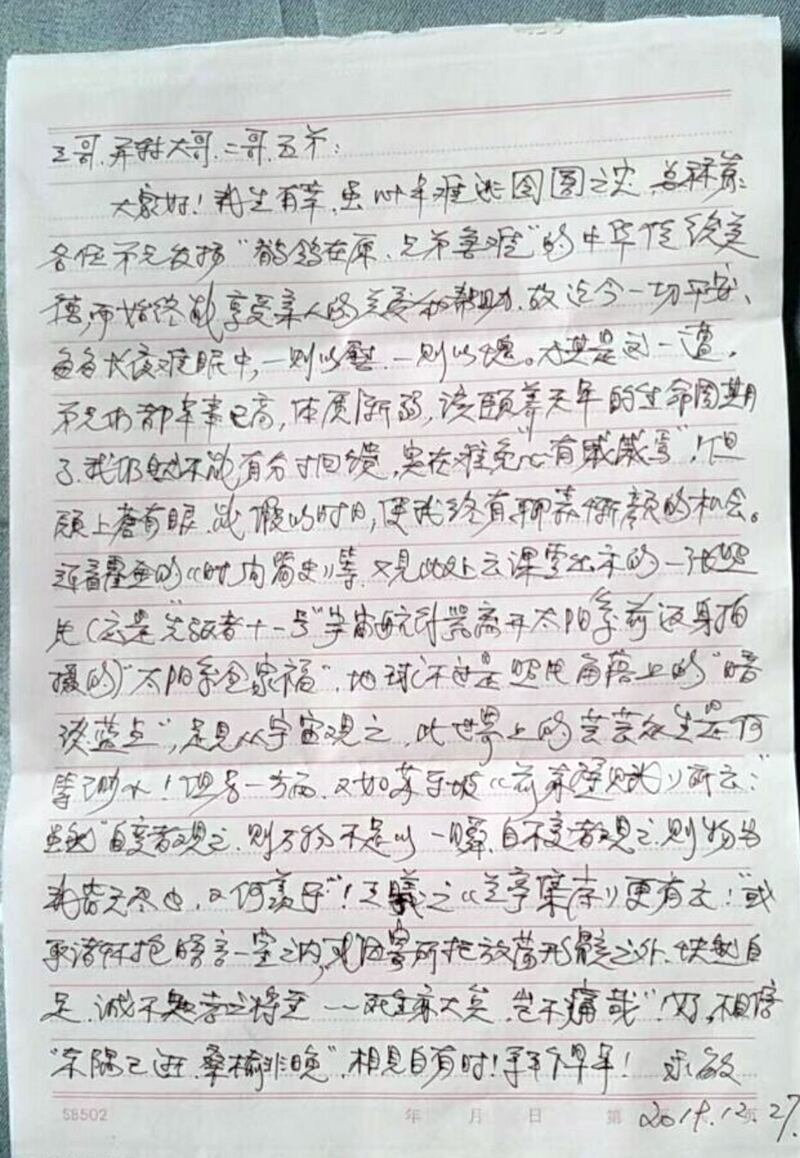 三哥.并转大哥.二哥.五弟:
大家好!我生有幸,虽叶年难逃囹圄之灾,总释蒙
各位弟兄发扬"鹡鸰在原、兄弟急难"的中华传统美
德,而始终能享受亲人的关爱和帮助.故迄今一切平安、
每每长夜难眠中,一则以慰.一则以愧。尤其是这一遭,
弟兄们都年事已高,体质渐弱,该颐养天年的生命周期
了.我仍然不能有分寸回馈,实在难免"心有戚戚焉"!但
愿上苍有眼.能假以时日,使我终有聊慕惭颜的机会。
近看霍金的《时间简史》等.又见此处云课堂出示的一张照
片(应是"先驱者十一号"宇宙航行器离开太阳系前返身拍
摄的)"太阳系全家福".地球不过是照片角落上的"暗
淡蓝点",足见从宇宙观之.此世界上的芸芸众生是何
等渺小!但另一方面.又如苏东坡《前赤壁赋》所云:
虽然"自变者观之.则万物不足以一瞬.自不变者观之.则物与
我皆无尽也,又何羡乎"!王羲之《兰亭集序》更有云:"或
取诸怀抱晤言一室之内,或因寄所托放荡形骸之外.快然自
足.诚不知老之将至……死生亦大矣.岂不痛哉".好,相信
"东隅已逝.桑榆非晚".相见自有时!手 早年!永敏
2019.12.27.
SB502 年 月 日 第 页